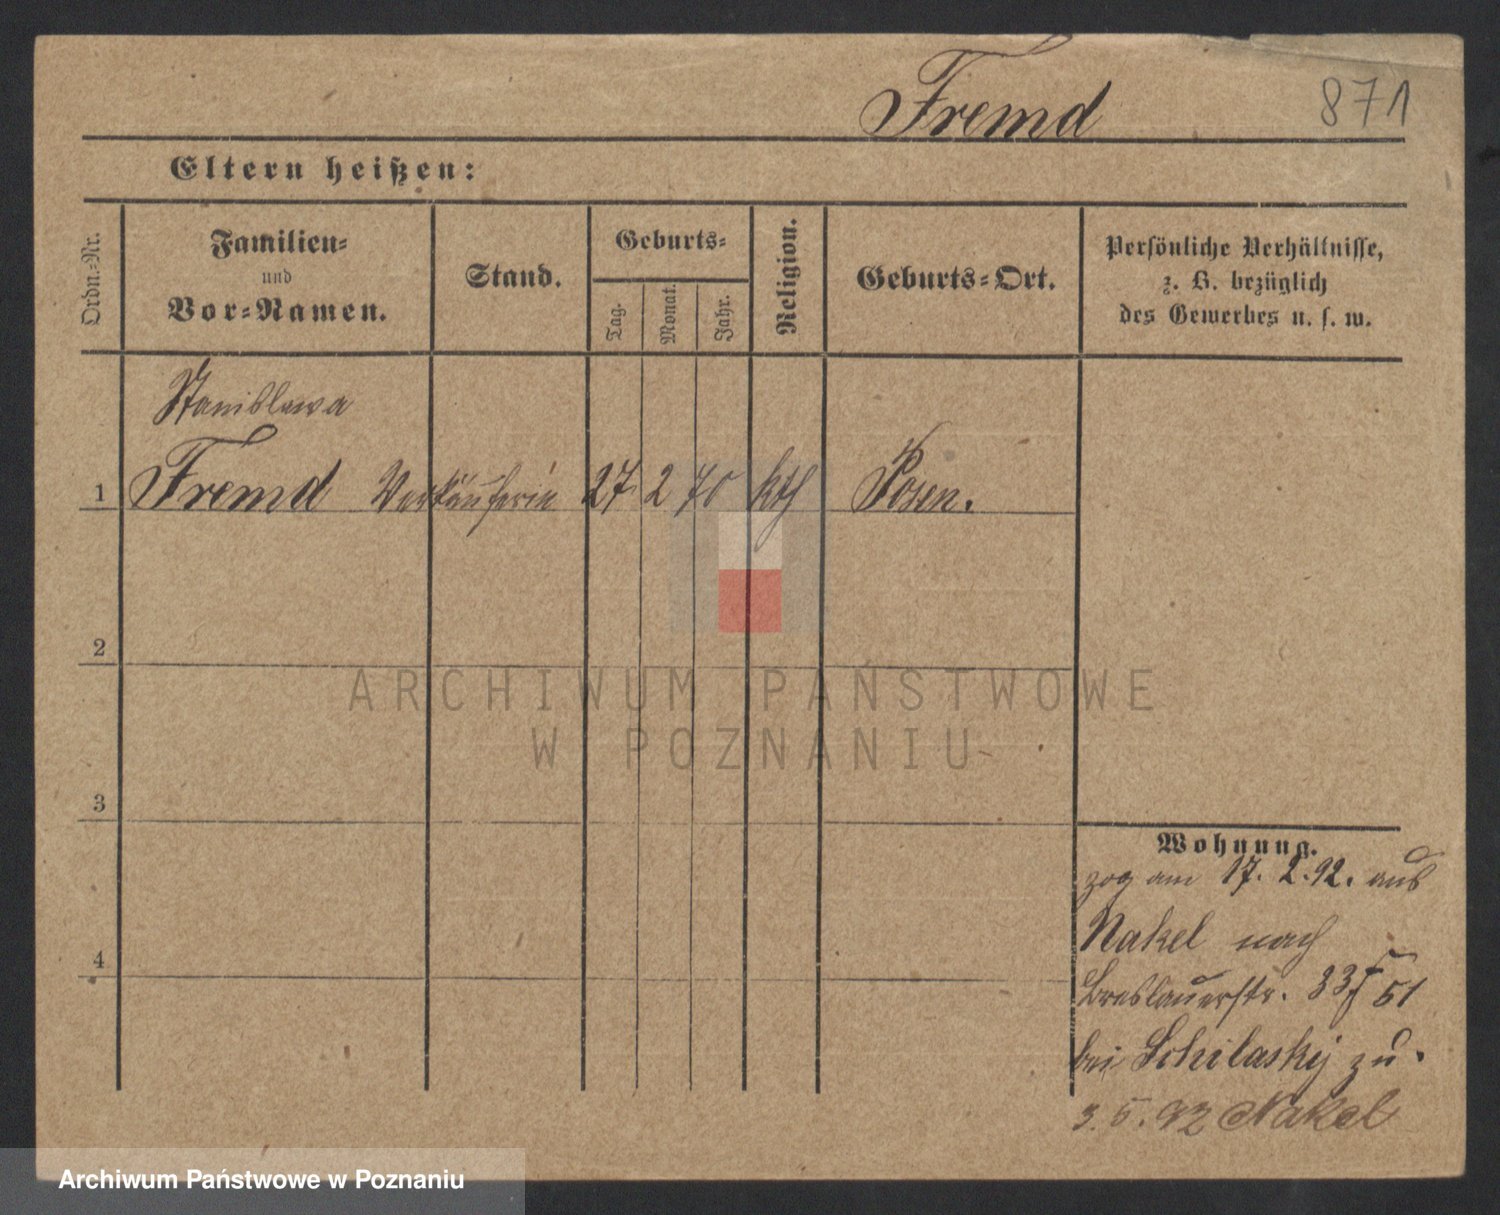 Fremd 871
Eltern heißen:
Ordn.-Nr.
Familien-
und
Vor-Namen.
Stand.
Geburts-
Tag.
Monat.
Jahr.
Religion.
Geburts-Ort.
Persönliche Verhältnisse,
z. B. bezüglich
des Gewerbes u. s. w.
Stanislawa
1 Fremd Verkäuferin 27 2 70 kth Posen.
2
3
4
Wohnung.
zog am 17. 2. 92. aus
Nakel nach
Breslauerstr. 33 51
bei Schilasky zu.
3. 5. 92 Nakel
ARCHIWUM PAŃSTWOWE
W POZNANIU
Archiwum Państwowe w Poznaniu